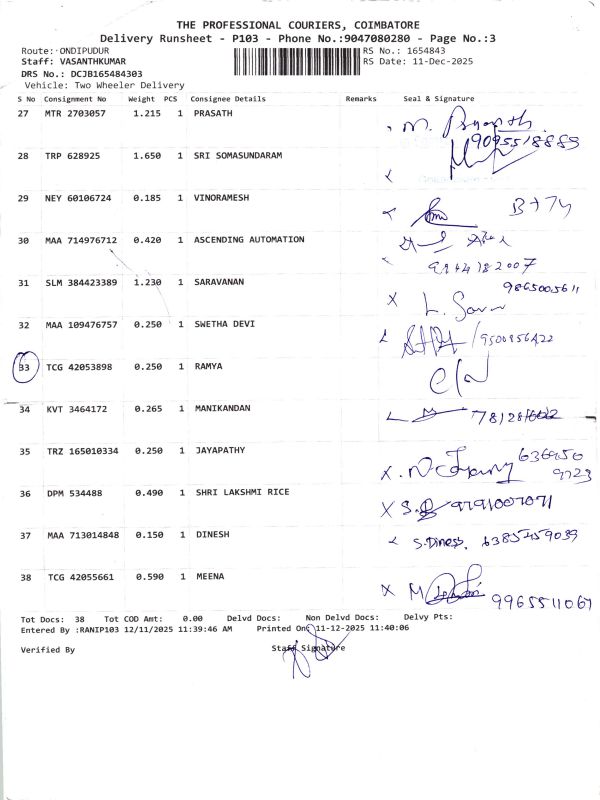 THE PROFESSIONAL COURIERS, COIMBATORE
Delivery Runsheet - P103 - Phone No.:9047080280 - Page No.:3
Route: ONDIPUDUR RS No.: 1654843
Staff: VASANTHKUMAR RS Date: 11-Dec-2025
DRS No.: DCJB165484303
Vehicle: Two Wheeler Delivery
S No Consignment No Weight PCS Consignee Details Remarks Seal & Signature
27 MTR 2703057 1.215 1 PRASATH M. Prasanth
9095518889
28 TRP 628925 1.650 1 SRI SOMASUNDARAM
29 NEY 60106724 0.185 1 VINORAMESH
30 MAA 714976712 0.420 1 ASCENDING AUTOMATION
31 SLM 384423389 1.230 1 SARAVANAN 9865005611
32 MAA 109476757 0.250 1 SWETHA DEVI 9500856422
33 TCG 42053898 0.250 1 RAMYA
34 KVT 3464172 0.265 1 MANIKANDAN
35 TRZ 165010334 0.250 1 JAYAPATHY
36 DPM 534488 0.490 1 SHRI LAKSHMI RICE 9791007071
37 MAA 713014848 0.150 1 DINESH S.Dinesh. 6385459039
38 TCG 42055661 0.590 1 MEENA 9965511067
Tot Docs: 38 Tot COD Amt: 0.00 Delvd Docs: Non Delvd Docs: Delvy Pts:
Entered By :RANIP103 12/11/2025 11:39:46 AM Printed On: 11-12-2025 11:40:06
Verified By Staff Signature